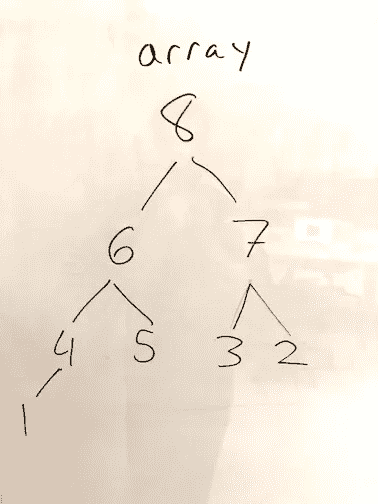 array
8
6 7
4 5 3 2
1